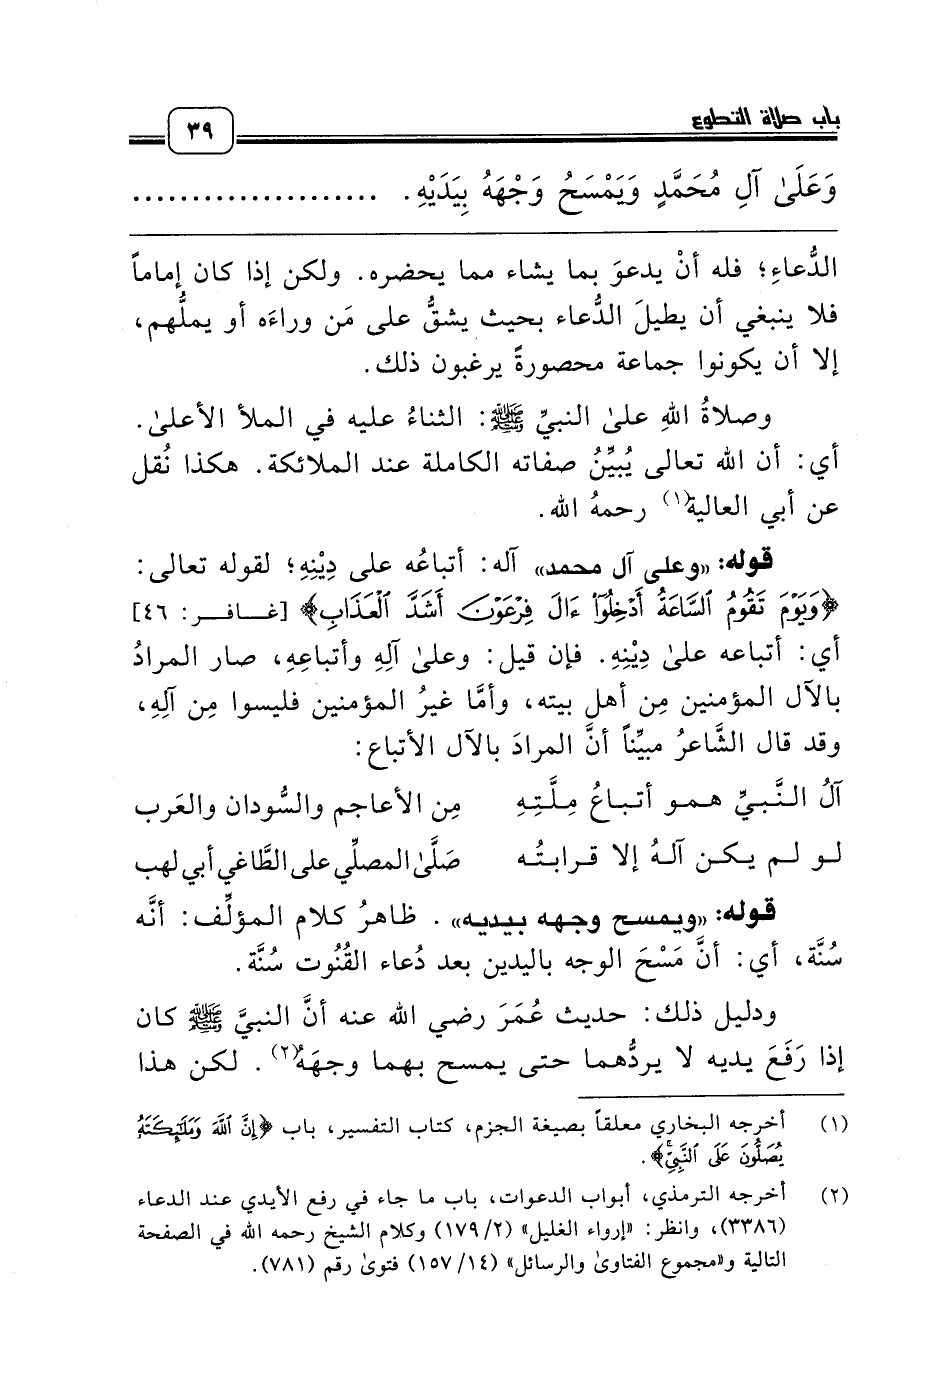 باب صلاة التطوع
٣٩
وَعَلَىٰ آلِ مُحَمَّدٍ وَيَمْسَحُ وَجْهَهُ بِيَدَيْهِ. .....................
الدُّعاءِ؛ فله أنْ يدعوَ بما يشاء مما يحضره. ولكن إذا كان إماماً
فلا ينبغي أن يطيلَ الدُّعاء بحيث يشقُّ على مَن وراءَه أو يملُّهم،
إلا أن يكونوا جماعة محصورةً يرغبون ذلك.
وصلاةُ اللهِ علىٰ النبيِّ ﷺ: الثناءُ عليه في الملأ الأعلىٰ.
أي: أن الله تعالى يُبيِّنُ صفاته الكاملة عند الملائكة. هكذا نُقل
عن أبي العالية(١) رحمهُ الله.
قوله: «وعلى آل محمد» آله: أتباعُه على دِيْنِهِ؛ لقوله تعالى:
﴿وَيَوْمَ تَقُومُ ٱلسَّاعَةُ أَدْخِلُوٓا۟ ءَالَ فِرْعَوْنَ أَشَدَّ ٱلْعَذَابِ﴾ [غافر: ٤٦]
أي: أتباعه علىٰ دِيْنِهِ. فإن قيل: وعلىٰ آلِهِ وأتباعِهِ، صار المرادُ
بالآل المؤمنين مِن أهل بيته، وأمَّا غيرُ المؤمنين فليسوا مِن آلِهِ،
وقد قال الشَّاعرُ مبيِّناً أنَّ المرادَ بالآل الأتباع:
آلُ النَّبيِّ همو أتباعُ مِلَّتِهِ مِن الأعاجم والسُّودان والعَرب
لو لم يكن آلهُ إلا قرابتُه صَلَّىٰ المصلِّي على الطَّاغي أبي لهب
قوله: «ويمسح وجهه بيديه». ظاهرُ كلام المؤلِّف: أنَّه
سُنَّة، أي: أنَّ مَسْحَ الوجه باليدين بعد دُعاء القُنُوت سُنَّة.
ودليل ذلك: حديث عُمَرَ رضي الله عنه أنَّ النبيَّ ﷺ كان
إذا رَفَعَ يديه لا يردُّهما حتى يمسح بهما وجهَهُ(٢). لكن هذا
(١) أخرجه البخاري معلقاً بصيغة الجزم، كتاب التفسير، باب ﴿إِنَّ ٱللَّهَ وَمَلَـٰٓئِكَتَهُۥ
يُصَلُّونَ عَلَى ٱلنَّبِيِّ﴾.
(٢) أخرجه الترمذي، أبواب الدعوات، باب ما جاء في رفع الأيدي عند الدعاء
(٣٣٨٦)، وانظر: «إرواء الغليل» (١٧٩/٢) وكلام الشيخ رحمه الله في الصفحة
التالية و«مجموع الفتاوىٰ والرسائل» (١٥٧/١٤) فتوىٰ رقم (٧٨١).